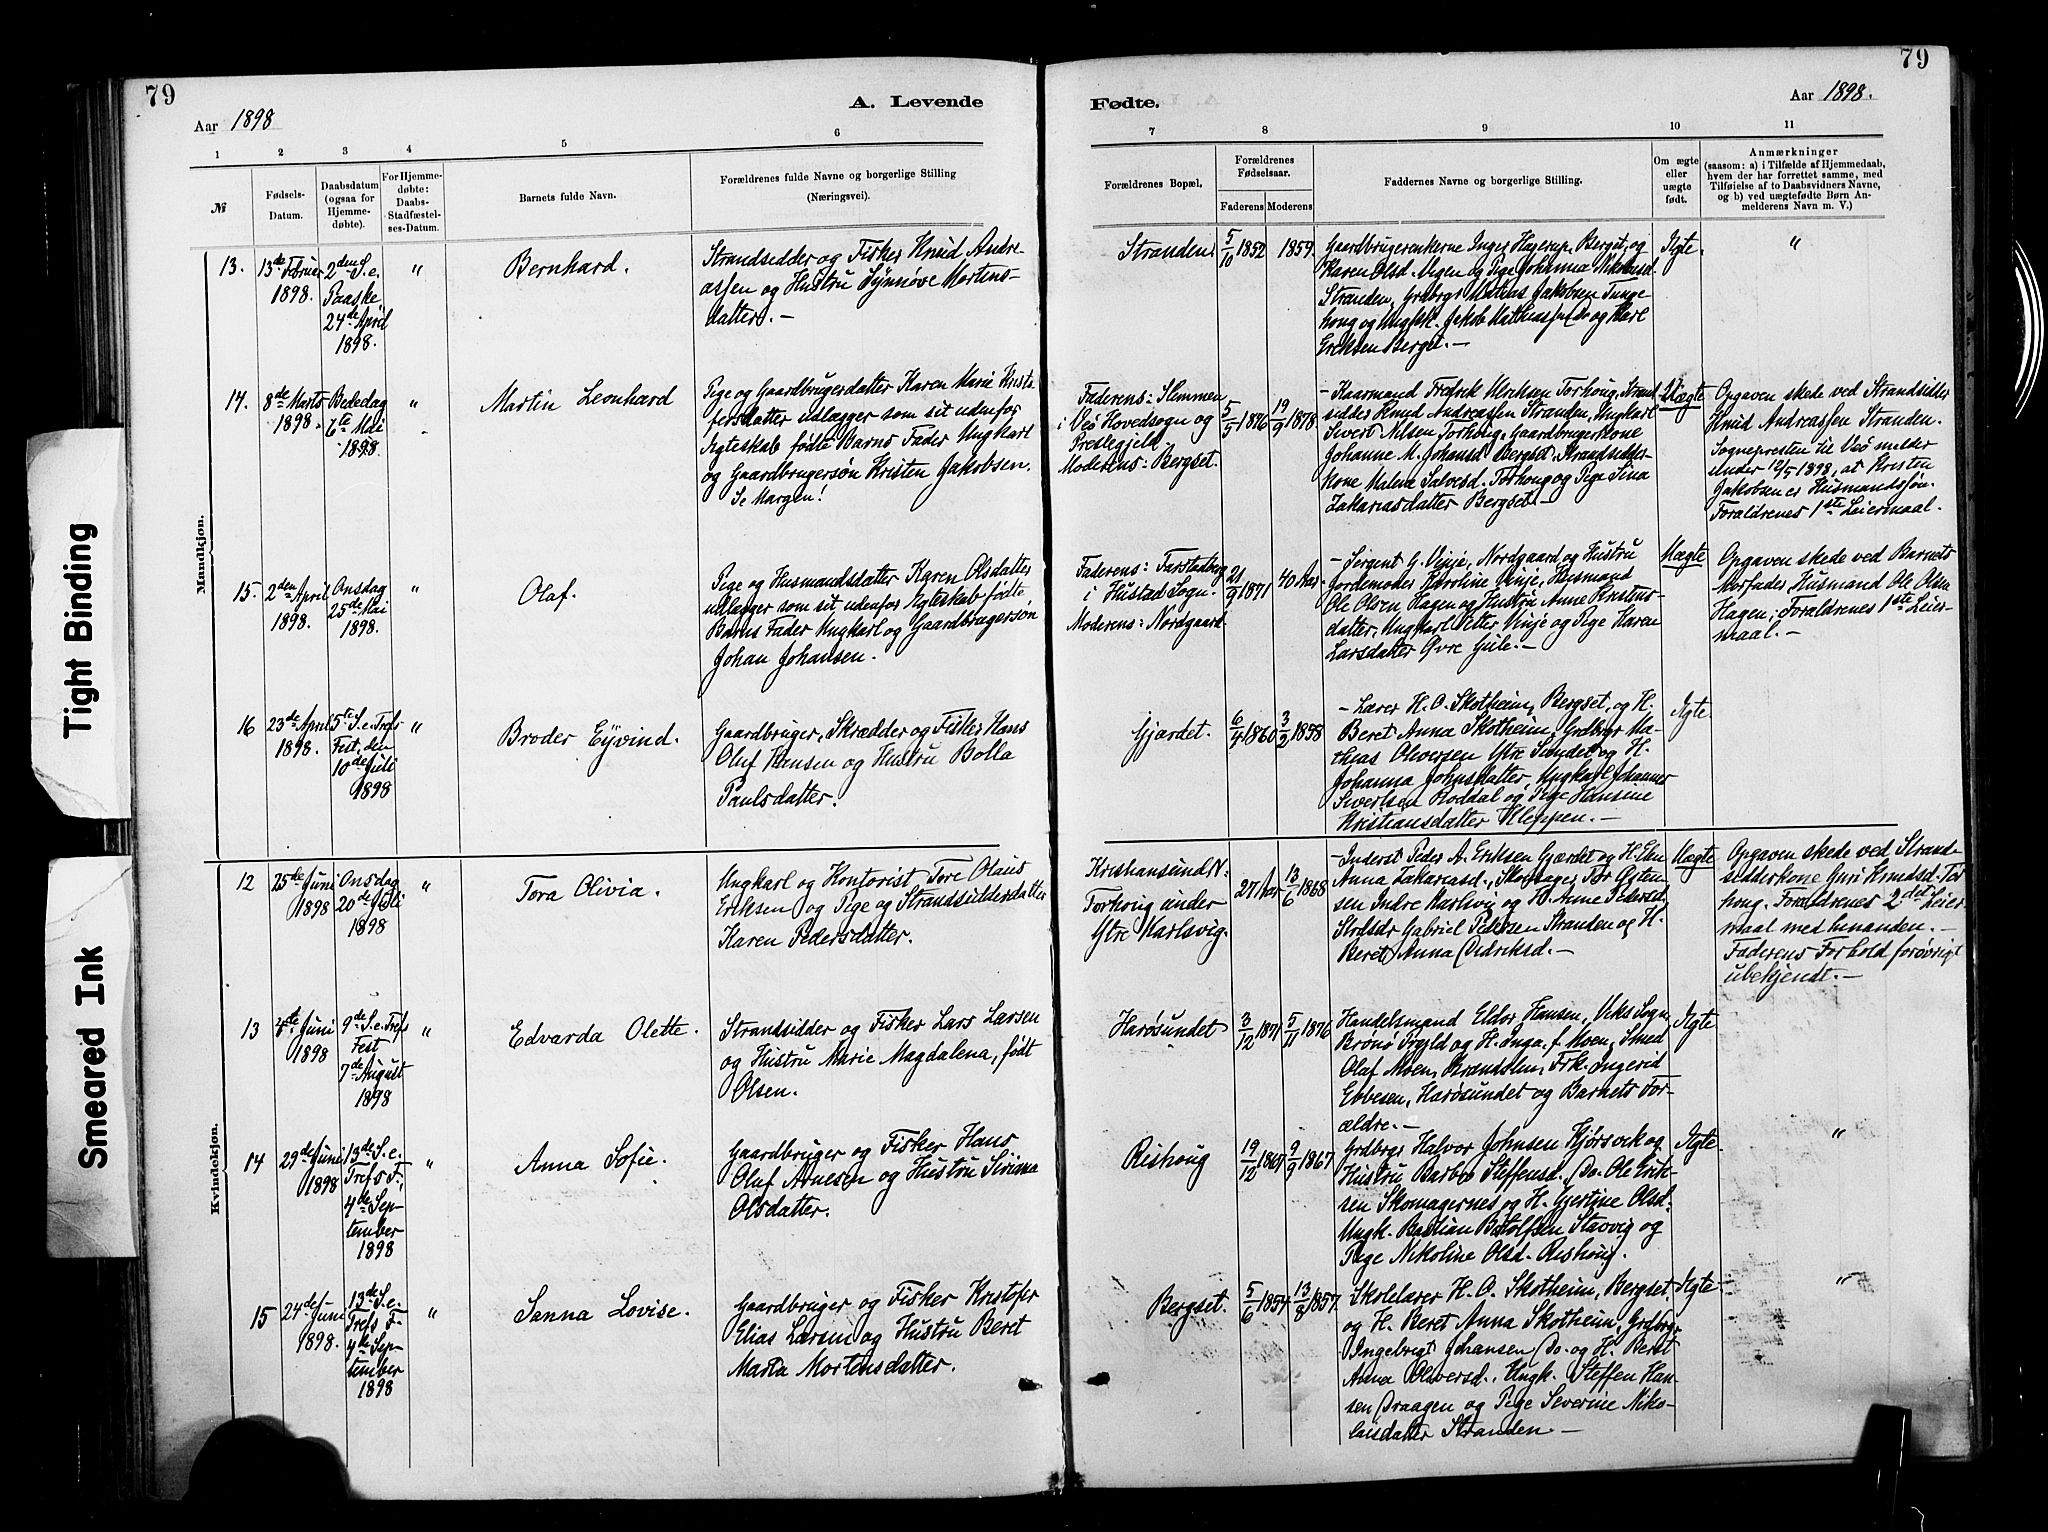 79
A. Levende
Aar 1898
1
2
3
4
5
6
№
Fødsels-
Datum.
Daabsdatum
(ogsaa for
Hjemme-
døbte).
For Hjemme-
døbte:
Daabs-
Stadfæstel-
ses-Datum.
Barnets fulde Navn.
Forældrenes fulde Navne og borgerlige Stilling
(Næringsvei).
Mandkjøn.
13.
13de Februar
1898.
2den S. e.
Paaske,
24de April
1898.
"
Bernhard.
Strandsidder og Fisker Knud Andre-
assen og Hustru Synnøve Mortens-
datter. –
14.
8de Marts
1898.
Bededag
6te Mai
1898.
"
Martin Leonhard
Pige og Gaardbrugerdatter Karen Marie Krists-
fersdatter udlægger som sit udenfor
Ægteskab fødte Barns Fader Ungkarl
og Gaardbrugersøn Kristen Jakobsen.
Se Margen!
15.
2den April
1898.
Onsdag
25de Mai
1898.
"
Olaf.
Pige og Husmandsdatter Karen Olsdatter
udlægger som sit udenfor Ægteskab fødte
Barns Fader Ungkarl og Gaardbrugersøn
Johan Johansen.
16
23de April
1898.
5te S. e. Trefs
Fest, den
10de Juli
1898
"
Broder Eyvind.
Gaardbruger, Skrædder og Fisker Hans
Oluf Hansen og Hustru Bolla
Paulsdatter.
Kvindekjøn.
12
25de Juni
1898
Onsdag
20de Juli
1898
"
Tora Olivia.
Ungkarl og Kontorist Tore Olaus
Eriksen og Pige og Strandsidderdatter
Karen Pedersdatter.
13
4de Juni
1898
9de S. e. Trefs
Fest
7de August
1898
"
Edvarda Olette.
Strandsidder og Fisker Lars Larsen
og Hustru Marie Magdalena, født
Olsen.
14
29de Juni
1898
13de S. e.
Trefs F.,
4de Sep-
tember
1898
"
Anna Sofie.
Gaardbruger og Fisker Hans
Oluf Arnesen og Hustru Siriana
Olsdatter.
15
24de Juni
1898.
13de S. e.
Trefs F.
4de Sep-
tember
1898
"
Sanna Lovise.
Gaardbruger og Fisker Kristofer
Elias Larsen og Hustru Beret
Marta Mortensdatter.
79
Fødte.
Aar 1898.
7
8
9
10
11
Forældrenes Bopæl,
Forældrenes
Fødselsaar.
Faderens
Moderens
Faddernes Navne og borgerlige Stilling.
Om ægte
eller
uægte
født.
Anmærkninger
(saasom: a) i Tilfælde af Hjemmedaab,
hvem der har forrettet samme, med
Tilføielse af to Daabsvidners Navne,
og b) ved uægtefødte Børn An-
melderens Navn m. V.)
Stranden
5/10 1852
1859.
Gaardbrugerenkerne Inger Hagerup, Berget, og
Karen Olsd. Megen og Pige Johanna Nikolaisd.
Stranden, Grdbrgr Mathias Jakobsen Tunge-
houg og Ungkk. Jakob Matthiassen Do og Karl
Eriksen Berget. –
Ægte
"
Faderens: Slemmen
i Veø Hovedsogn og
Prestegjeld.
Moderens: Bergset.
5/5 1876
19/9 1878
– Kaarmand Fredrik Ulriksen Torhoug, Strand-
sidder Knud Andreassen Stranden, Ungkarl
Sivert Nilsen Torhoug, Gaardbrugerkone
Johanne M. Johansd. Bergset, Strandsidder-
kone Malene Salvesd. Torhoug og Pige Sina
Zakariasdatter Bergset –
Uægte
Opgaven skede ved Strandsidder
Knud Andreassen Stranden.
Sognepresten til Veø melder
under 12/5 1898, at Kristen
Jakobsen er Husmandssøn.
Forældrenes 1ste Leiermaal.
Faderens: Farstadberg
i Hustad Sogn.
Moderens: Nordgaard.
21/9 1871
40 Aar.
– Sergent G. Vinje, Nordgaard og Hustru
Jordemoder Karoline Vinje, Husmand
Ole Olsen Hagen og Hustru Anne Kristens-
datter, Ungkarl Peter Vinje og Pige Karen
Larsdatter Øvre Gule. –
Uægte
Opgaven skede ved Barnets
Morfader Husmand Ole Olsen
Hagen; Forældrenes 1ste Leier-
maal. –
Gjærdet.
6/4 1860
3/2 1898
– Lærer H. O. Skotheim, Bergset, og H.
Beret Anna Skotheim, Grdbrgr Ma-
thias Oliversen Ytre Sundet og H.
Johanna Johnsdatter, Ungkarl Johannes
Sivertsen Roddal og Pige Hansine
Kristiansdatter Kleppen. –
Ægte
Kristiansund N.
Torhoug under
Ytre Karlsvig.
27 Aar
13/6 1868
– Inderst Peder A. Eriksen Gjærdet og H. Elen
Anna Zakariasd., Skomager Tor Osten-
sen Indre Karlsvig og H. Anne Pedersd.,
Strdsdr Gabriel Pedersen Stranden og H.
Beret Anna Didriksd. –
Uægte
Opgaven skede ved Strand-
sidderkone Guri Knudsd. Tor-
houg. Forældrenes 2det Leier-
maal med hinanden. –
Faderens Forhold forøvrigt
ubekjendt. –
Harøsundet
3/12 1871
5/11 1876
Handelsmand Eldor Hansen, Viks Sogn,
Brønø Prgjld og H. Inga, f. Moen, Smed
Olaf Moen, Brændolm, Frk. Ingerid
Ebbesen, Harøsundet og Barnets For-
ældre. –
Ægte
Rishoug
19/12 1867
9/9 1867
Grdbrgr Halvor Johnsen Hjørsvik og
Hustru Barbro Steffensd., Do. Ole Erik-
sen Skomagernes og H. Gjertine Olsd.
Ungk. Bastian Botolfsen Stavvig og
Pige Nikoline Olsd. Rishoug.
Ægte
"
Bergset.
5/6 1854
13/8 1857.
Skolelærer H. O. Skotheim, Bergset,
og H. Beret Anna Skotheim, Grdbrgr
Ingebrigt Johansen Do. og H. Beret
Anna Oliversd., Ungk. Steffen Han-
sen Draagen og Pige Severine Niko-
laisdatter Stranden. –
Ægte
"
Tight Binding
Smeared Ink